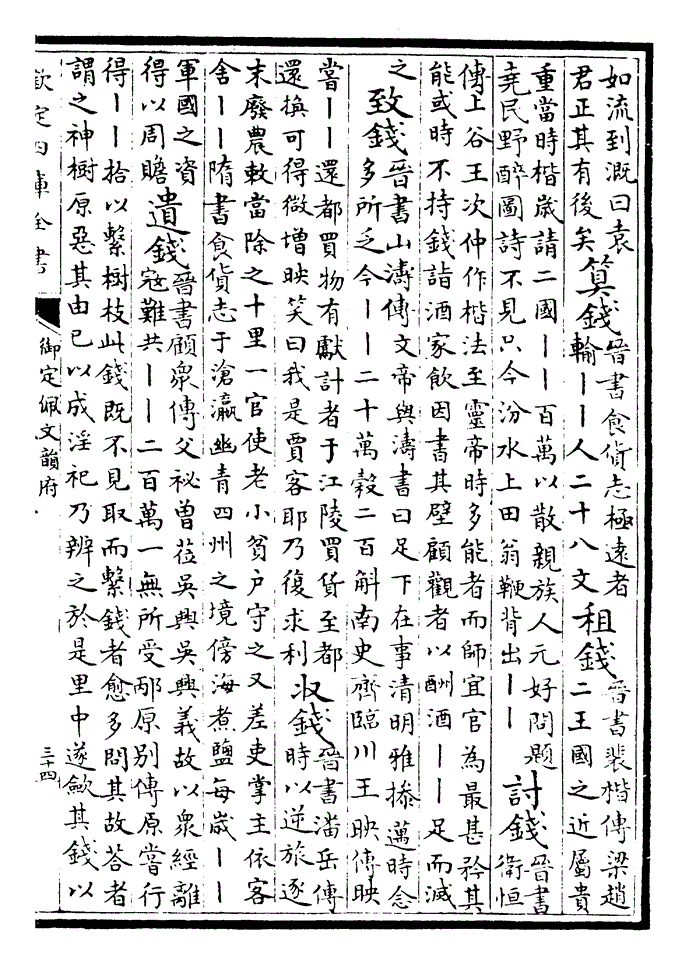 如流到溉曰袁
君正其有後矣
算錢
晉書食貨志極遠者
輸丨丨人二十八文
租錢
晉書裴楷傳梁趙
二王國之近屬貴
重當時楷歲請二國丨丨百萬以散親族人元好問題
堯民野醉圖詩不見只今汾水上田翁鞭背出丨丨
討錢
晉書
衛恒
傳上谷王次仲作楷法至靈帝時多能者而師宜官為最甚矜其
能或時不持錢詣酒家飲因書其壁顧觀者以酬酒丨丨足而滅
之
致錢
晉書山濤傳文帝與濤書曰足下在事清明雅操邁時念
多所乏今丨丨二十萬穀二百斛南史齊臨川王映傳映
嘗丨丨還都買物有獻計者于江陵買貨至都
還換可得微增映笑曰我是賈客耶乃復求利
收錢
晉書潘岳傳
時以逆旅逐
末廢農敕當除之十里一官使老小貧户守之又差吏掌主依客
舍丨丨隋書食貨志于滄瀛幽青四州之境傍海煮鹽每歲丨丨
軍國之資
得以周贍
遺錢
晉書顧衆傳父祕曽莅吳興吳興義故以衆經離
寇難共丨丨二百萬一無所受邴原别傳原嘗行
得丨丨拾以繫樹枝此錢既不見取而繫錢者愈多問其故荅者
謂之神樹原惡其由已以成淫祀乃辨之於是里中遂歛其錢以
欽定四庫全書
御定佩文韻府
三十四